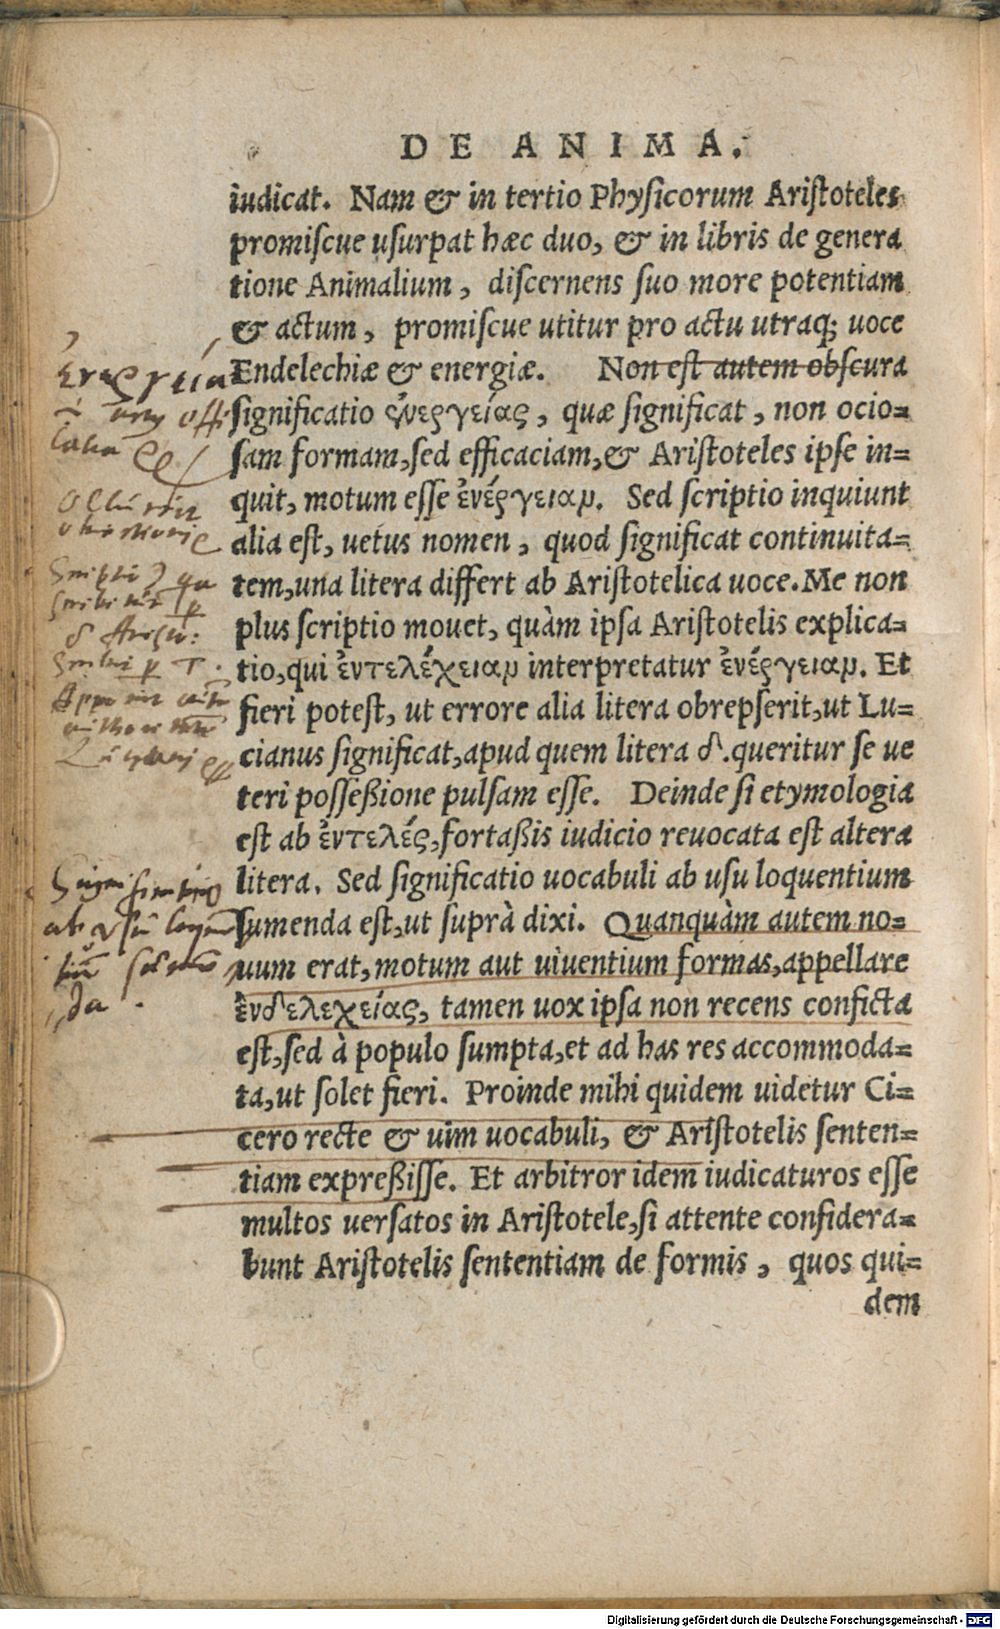 DE ANIMA.
iudicat. Nam & in tertio Physicorum Aristoteles
promiſcue uſurpat hæc duo, & in libris de genera
tione Animalium, diſcernens ſuo more potentiam
& actum, promiſcue utitur pro actu utraq; uoce
Endelechiæ & energiæ. Non eſt autem obſcura
ſignificatio ἐνεργείας, quæ ſignificat, non ocio=
ſam formam, ſed efficaciam, & Ariſtoteles ipſe in=
quit, motum eſſe ἐνέργειαν. Sed ſcriptio inquiunt
alia eſt, uetus nomen, quod ſignificat continuita=
tem, una litera differt ab Ariſtotelica uoce. Me non
plus ſcriptio mouet, quàm ipſa Ariſtotelis explica=
tio, qui ἐντελέχειαν interpretatur ἐνέργειαν. Et
fieri poteſt, ut errore alia litera obrepſerit, ut Lu=
cianus ſignificat, apud quem litera δ. queritur ſe ue
teri poſſeßione pulſam eſſe. Deinde ſi etymologia
eſt ab ἐντελές, fortaßis iudicio reuocata eſt altera
litera. Sed ſignificatio uocabuli ab uſu loquentium
ſumenda eſt, ut ſuprà dixi. Quanquàm autem no=
uum erat, motum aut uiuentium formas, appellare
ἐνδελεχείας, tamen uox ipſa non recens conficta
eſt, ſed à populo ſumpta, et ad has res accommoda=
ta, ut ſolet fieri. Proinde mihi quidem uidetur Ci=
cero recte & uim uocabuli, & Ariſtotelis ſenten=
tiam expreßiſſe. Et arbitror idem iudicaturos eſſe
multos uerſatos in Ariſtotele, ſi attente conſidera=
bunt Ariſtotelis ſententiam de formis, quos qui=
dem
Digitalisierung gefördert durch die Deutsche Forschungsgemeinschaft - DFG